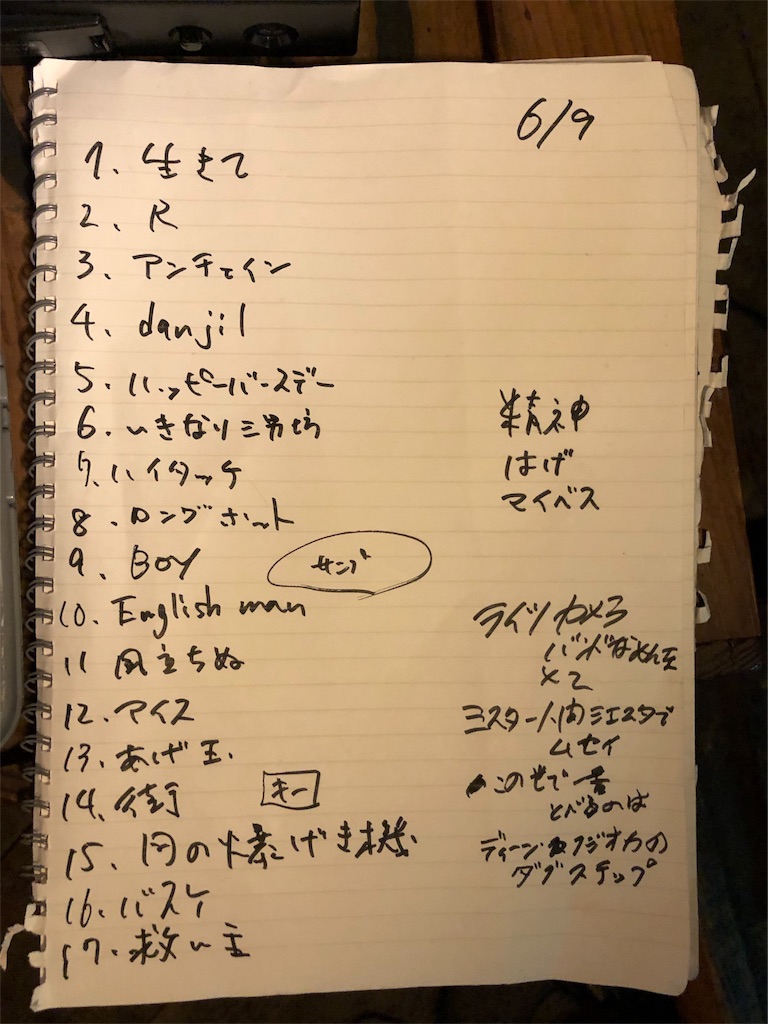 6/9
1、生きて
2、R
3、アンチェイン
4、danjil
5、ハッピーバースデー
6、いきなり三男坊
7、ハイタッチ
8、ロングホット
9、BOY
サンプ
10、English man
11 風立ちぬ
12、アイス
13、あげ玉、
14、街
キー
15、円の爆げき機
16、バスケ
17、救い主
精神
はげ
マイベス
ライツ カメラ
バンドなめんな
×2
ミスター人間ミュスタで
ムセイ
この世で一番
とべるのは
ディーンフジオカの
ダブステップ